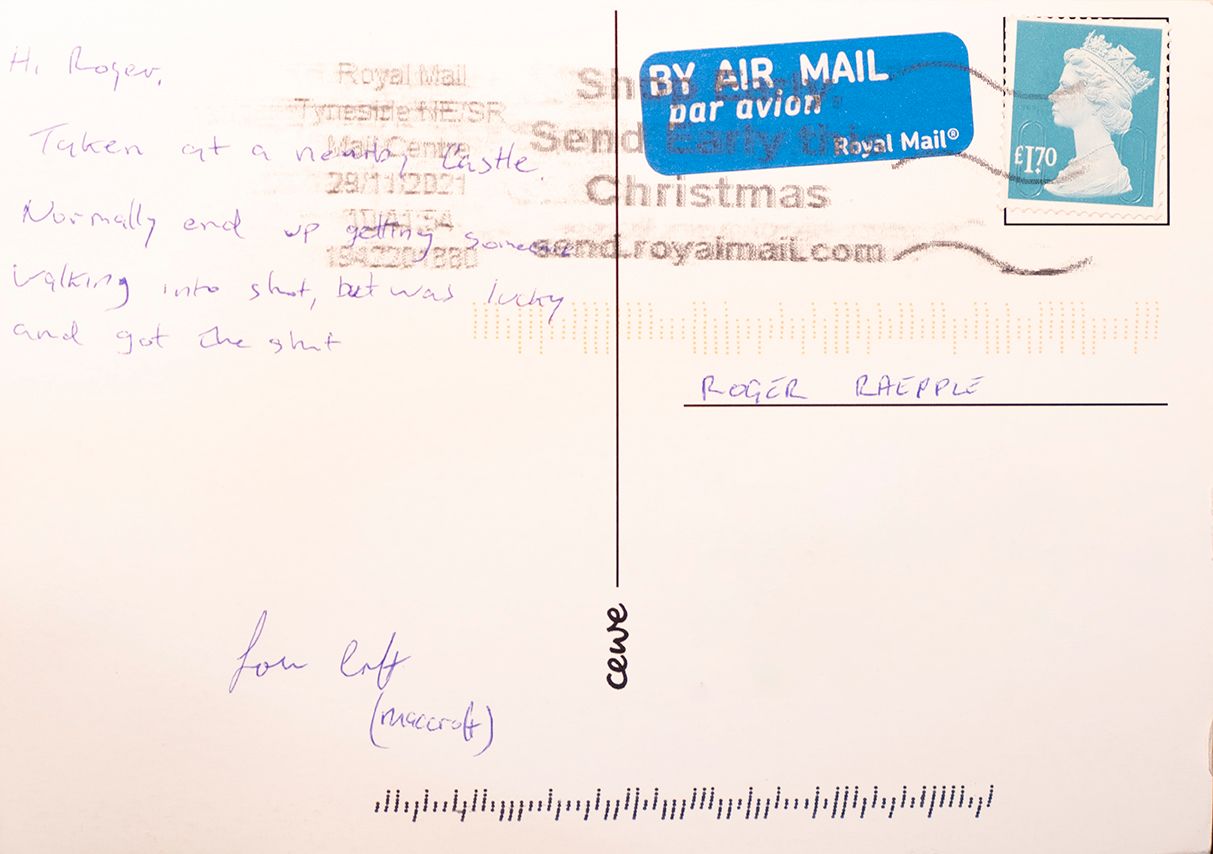 Hi Roger,
Taken at a nearby Castle.
Normally end up getting someone
walking into shot, but was lucky
and got the shot
(maccroft)
Royal Mail
Tyneside NE/SR
Mail Centre
29/11/2021
Send Early this
Christmas
send.royalmail.com
BY AIR MAIL
par avion
Royal Mail®
£1.70
ROGER RAEPPLE
cewe